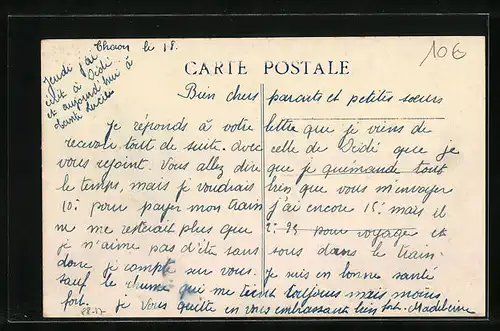 Thaon le 18.
Jeudi j'ai
écrit à Dédé
et aujourd'hui à
10G
CARTE POSTALE
Bien chers parents et petites sœurs
Je réponds à votre lettre que je viens de
recevoir tout de suite. avec celle de Dédé que je
vous rejoint. Vous allez dire que je quémande tout
le temps, mais je voudrais bien que vous m'envoyer
10f pour payer mon train j'ai encore 15f mais il
ne me resterait plus que 2f 95 pour voyager et
je n'aime pas d'être sans sous dans le train.
donc je compte sur vous. Je suis en bonne santé
sauf le rhume qui me tient toujours mais moins
fort. Je vous quitte en vous embrassant bien fort. Madeleine